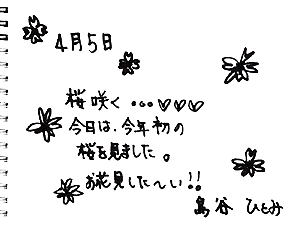 4月5日
桜咲く…♡♡♡
今日は、今年初の
桜を見ました。
お花見した〜い!!
島谷ひとみ